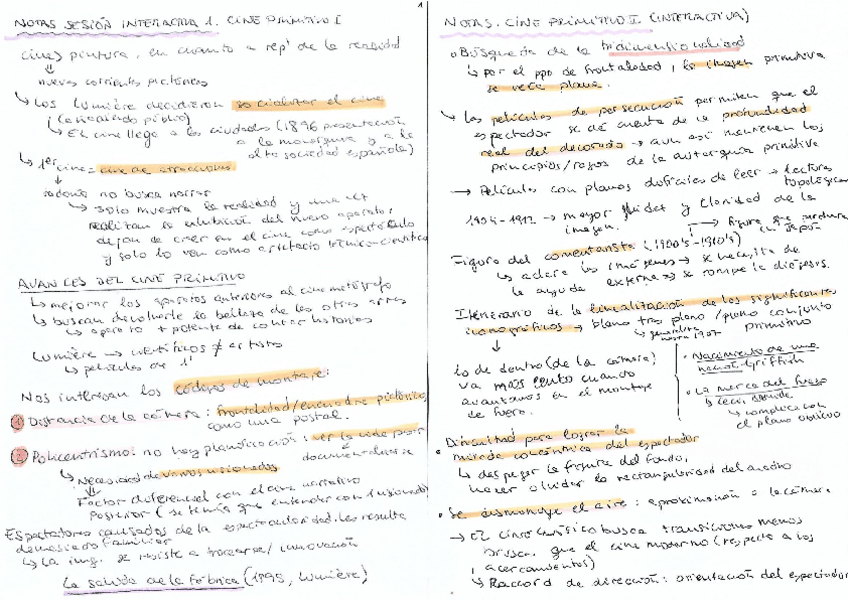 NOTAS SESIÓN INTERACTIVA 1. CINE PRIMITIVO I
cine > pintura, en cuanto a repº de la realidad
nuevas corrientes pictóricas
↳ Los Lumière decidieron socializar el cine
(buscando público)
↳ El cine llegó a las ciudades (1896 presentación
a la monarquía y a la
alta sociedad española)
↳ 1er cine = cine de atracciones
todavía no busca narrar
↳ solo muestra la realidad y una vez
realizan la exhibición del nuevo aparato,
dejan de creer en el cine como espectáculo
y solo lo ven como artefacto técnico-científico
AVANCES DEL CINE PRIMITIVO
↳ mejorar los aparatos anteriores al cinematógrafo
↳ buscan devolverle la belleza de las otras artes
↳ aparato + potente de contar historias
Lumière → científicos ≠ artistas
↳ películas de 1'
Nos interesan los códigos de montaje:
1 Distancia de la cámara: frontalidad/encuadre pictórico,
como una postal.
2 Policentrismo: no hay planificación: ver la vida pasar
documentalista
↳ Necesidad de varios visionados
Factor diferencial con el cine narrativo
posterior (se tenía que entender con 1 visionado)
Espectadores cansados de la espectacularidad. Les resulta
demasiado familiar
↳ La img. se resiste a / innovación
La salida de la fábrica (1895, Lumière)
1
NOTAS. CINE PRIMITIVO I. (INTERACTIVA)
• Búsqueda de la tridimensionalidad
↳ por el ppo de frontalidad, la imagen primitiva
se veía plana.
↳ Las películas de persecución permiten que el
espectador se dé cuenta de la profundidad
real del decorado → aun así mantienen los
principios/rasgos de la autarquía primitiva
→ Películas con planos difíciles de leer → lecturas
topológicas
1904-1912 → mayor fluidez y claridad de la
imagen.
→ figura que perdura
en Japón
Figura del comentarista (1900's-1910's)
↳ aclara las imágenes → se necesita de
la ayuda externa → se rompe la diégesis.
Itinerario de la linealización de los significantes
iconográficos → plano tras plano/plano conjunto
primitivo
↳ generaliza
hasta 1907
lo de dentro (de la cámara)
va más lento cuando
avanzamos en el montaje
de fuera.
• Nacimiento de una
nación-Griffith
• La marca del fuego
↳ Cecil
↳ complica con
el plano oblicuo
• Dificultad para lograr la
mirada concéntrica del espectador
↳ despegar la figura del fondo,
hacer olvidar la rectangularidad del cuadro
• Se desmonta el aire: aproximación a la cámara
→ El cine clásico busca transiciones menos
bruscas que el cine moderno (respecto a los
acercamientos)
↳ Raccord de dirección: orientación del espectador